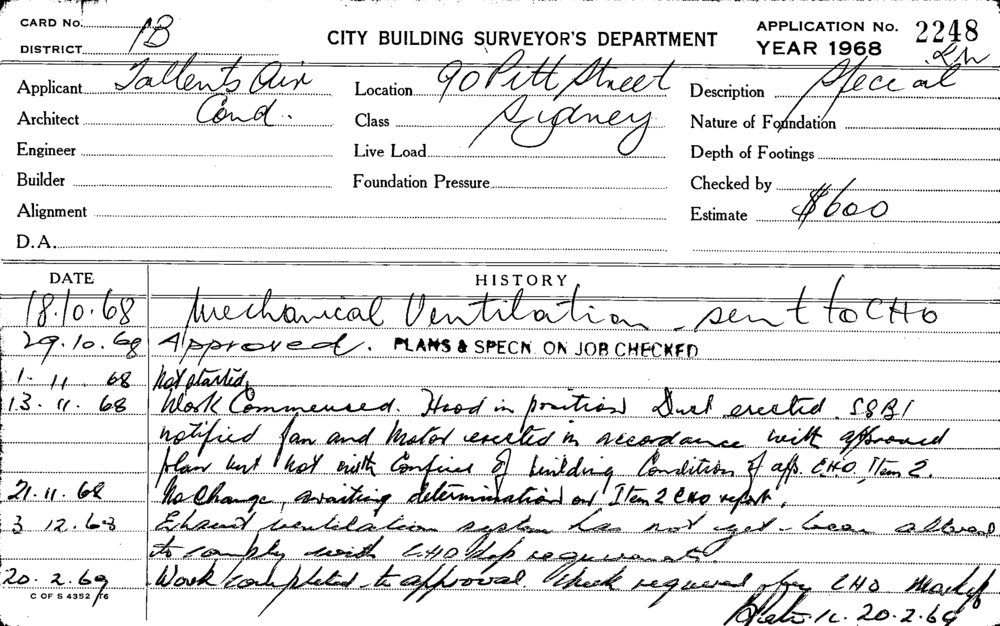 CARD No. 1B
CITY BUILDING SURVEYOR'S DEPARTMENT
APPLICATION No. 2248
DISTRICT
YEAR 1968
Applicant Tallents Air
Location 90 Pitt Street
Description Special
Architect Cond.
Class Sydney
Nature of Foundation
Engineer
Live Load
Depth of Footings
Builder
Foundation Pressure
Checked by
Alignment
Estimate $600
D.A.
DATE HISTORY
18.10.68 Mechanical Ventilation - sent to CHO
29.10.68 Approved. PLANS & SPECN. ON JOB CHECKED
1. 11. 68 Not started.
13. 11. 68 Work Commensed. Hood in position Duct erected. SSBI
notified fan and Motor erected in accordance with approved
plan but not with Confines of building Condition of app. CHO, Item 2.
21.11.68 No Change, awaiting determination on Item 2 CHO report.
3 12.68 Exhaust ventilation system has not yet been altered
to comply with CHO Dep requirements.
20. 2. 69 Work completed to approval. Check required by CHO
20.2.69
C OF S 4352 76